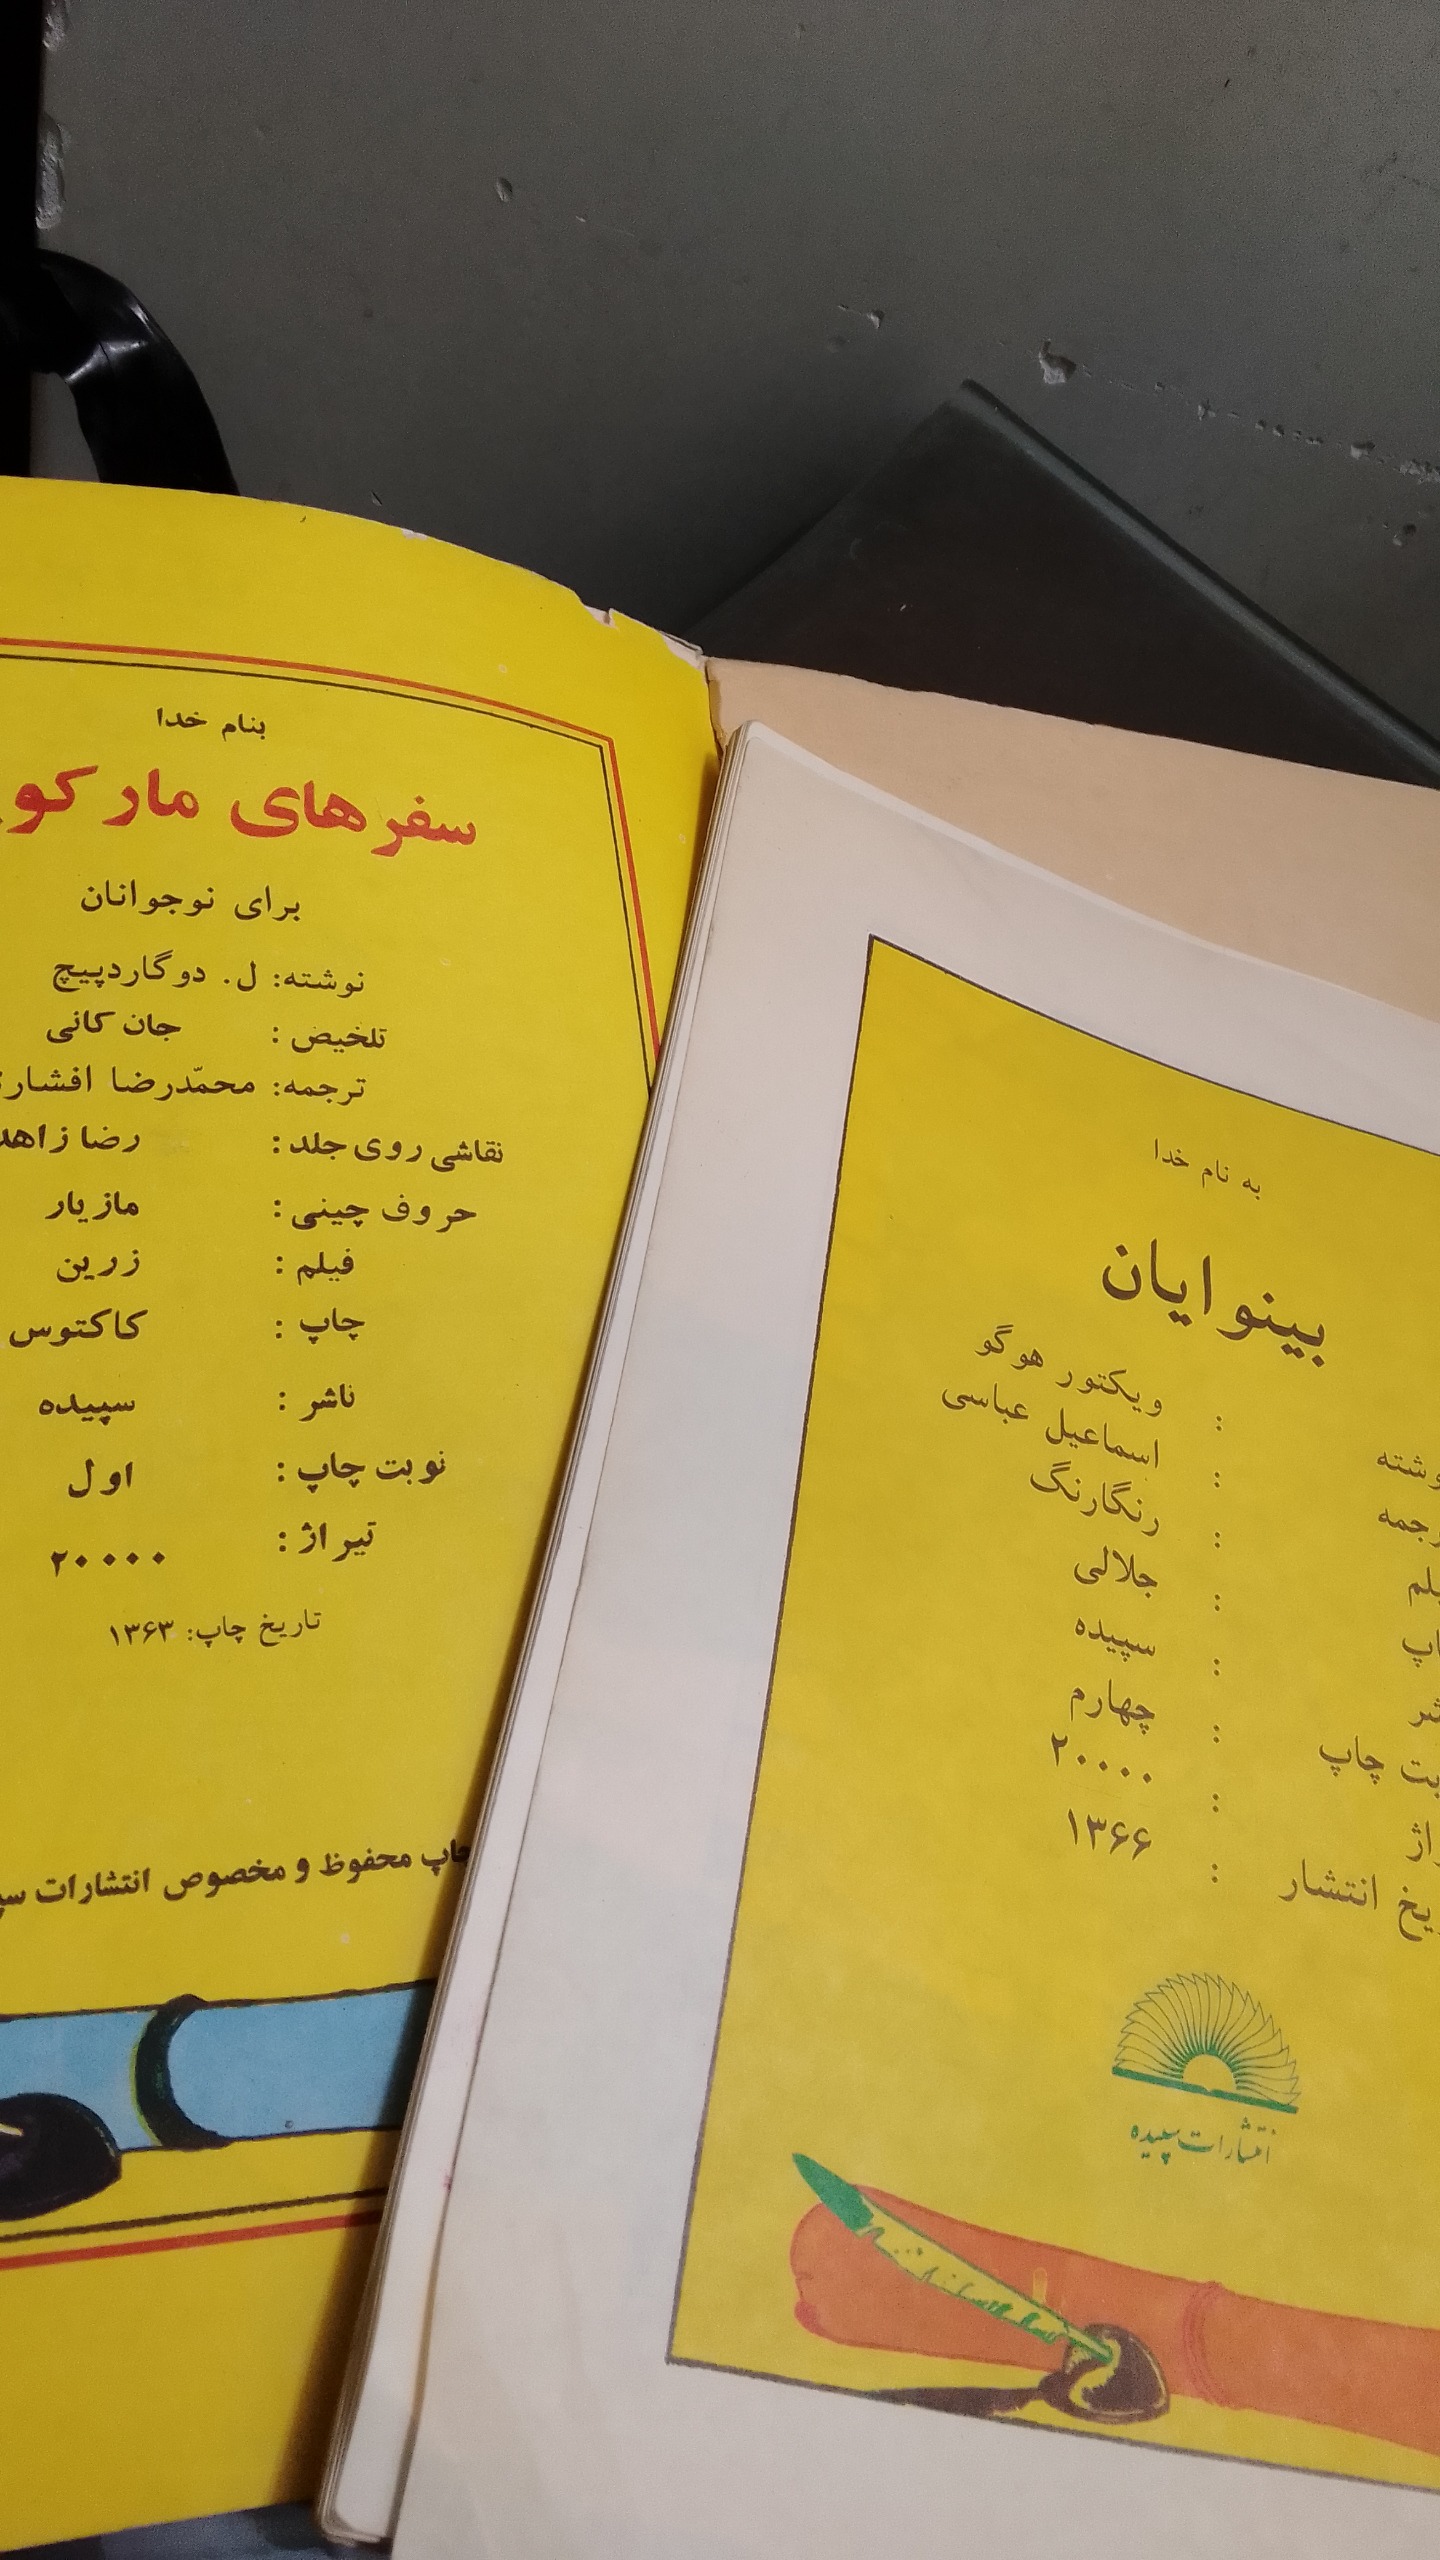 بنام خدا
سفرهای مارکو
برای نوجوانان
نوشته: ل. دوگاردپیچ
تلخیص : جان کانی
ترجمه: محمّدرضا افشار
نقاشی روی جلد : رضا زاهد
حروف چینی : مازیار
فیلم : زرین
چاپ : کاکتوس
ناشر : سپیده
نوبت چاپ : اول
تیراژ : ۲۰۰۰۰
تاریخ چاپ: ۱۳۶۳
چاپ محفوظ و مخصوص انتشارات
به نام خدا
بینوایان
وشته : ویکتور هوگو
رجمه : اسماعیل عباسی
لم : رنگارنگ
اپ : جلالی
شر : سپیده
بت چاپ : چهارم
راژ : ۲۰۰۰۰
یخ انتشار : ۱۳۶۶
انتشارات سپیده